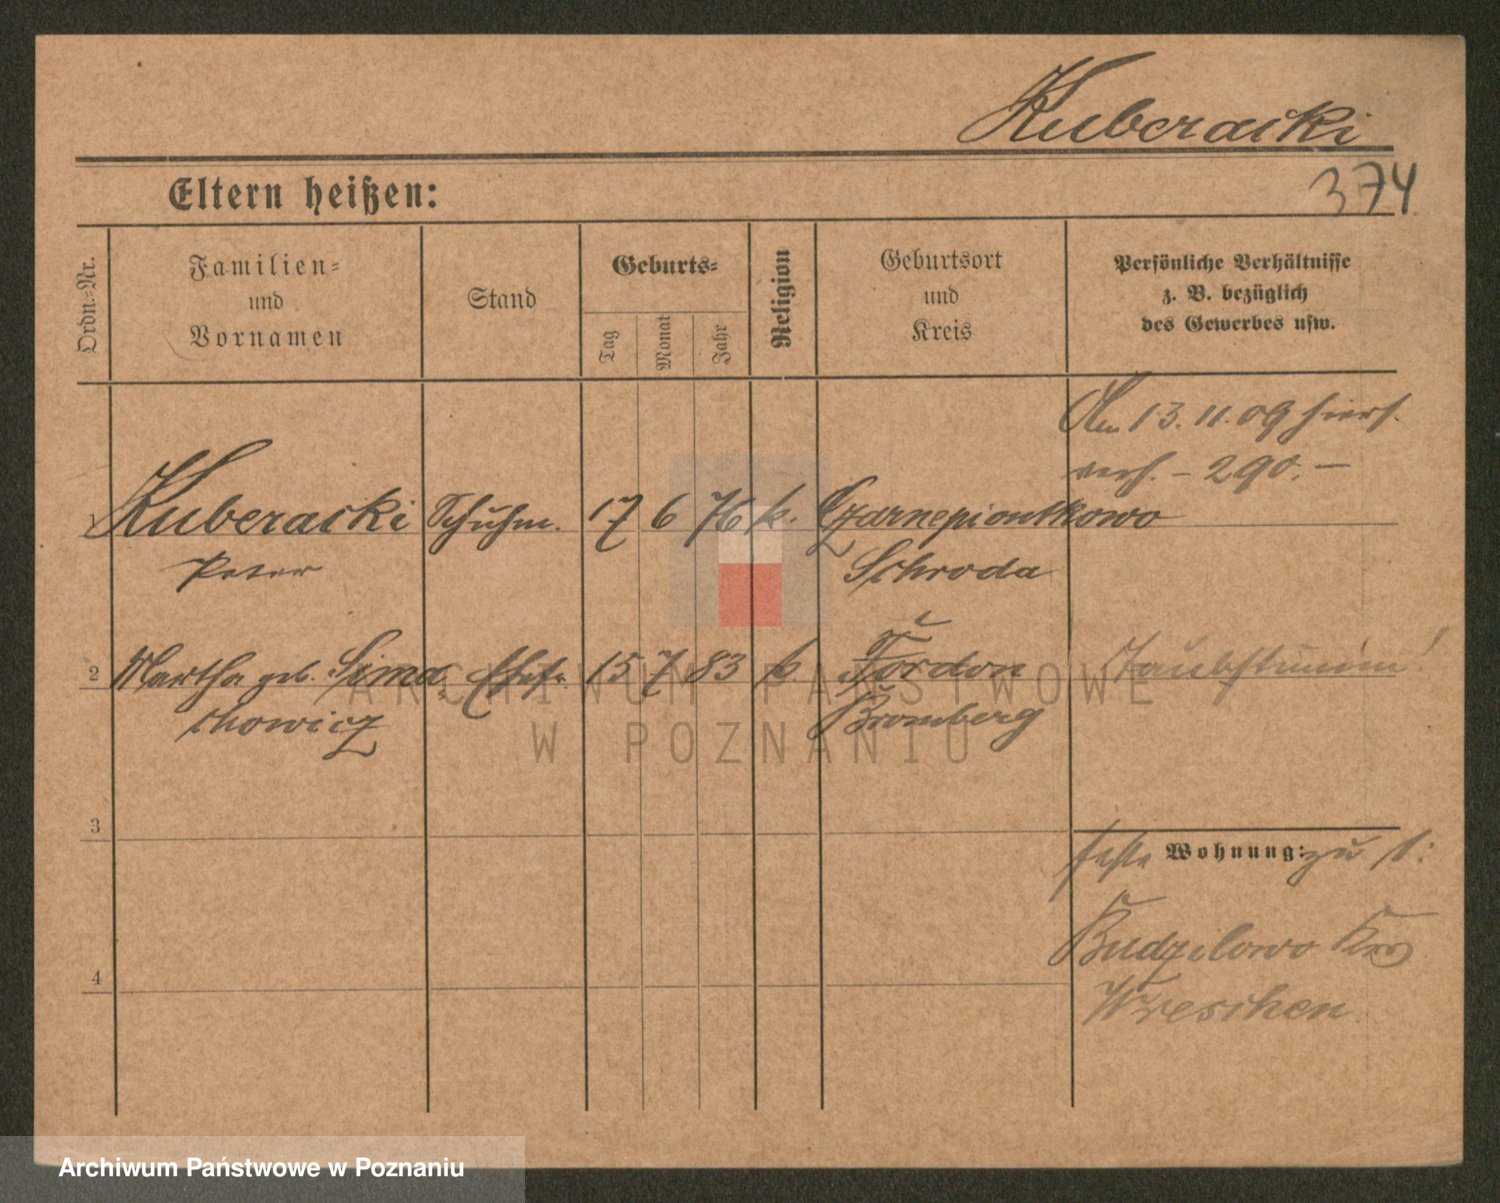 Kuberacki
374
Eltern heißen:
Ordn=Nr.
Familien=
und
Vornamen
Stand
Geburts=
Tag
Monat
Jahr
Religion
Geburtsort
und
Kreis
Persönliche Verhältnisse
z. B. bezüglich
des Gewerbes usw.
Am 13.11.09 hiers.
verh. - 290. -
1 Kuberacki Schuhm. 17 6 76 k. Czarnepiontkowo
Peter Schroda
2 Martha geb. Sima Ehefr. 15 7 83 k Fordon Taubstumm!
chowicz Bromberg
3
feste Wohnung: zu 1:
Budzilowo Krs
4
Wreschen
ARCHIWUM PAŃSTWOWE
W POZNANIU
Archiwum Państwowe w Poznaniu